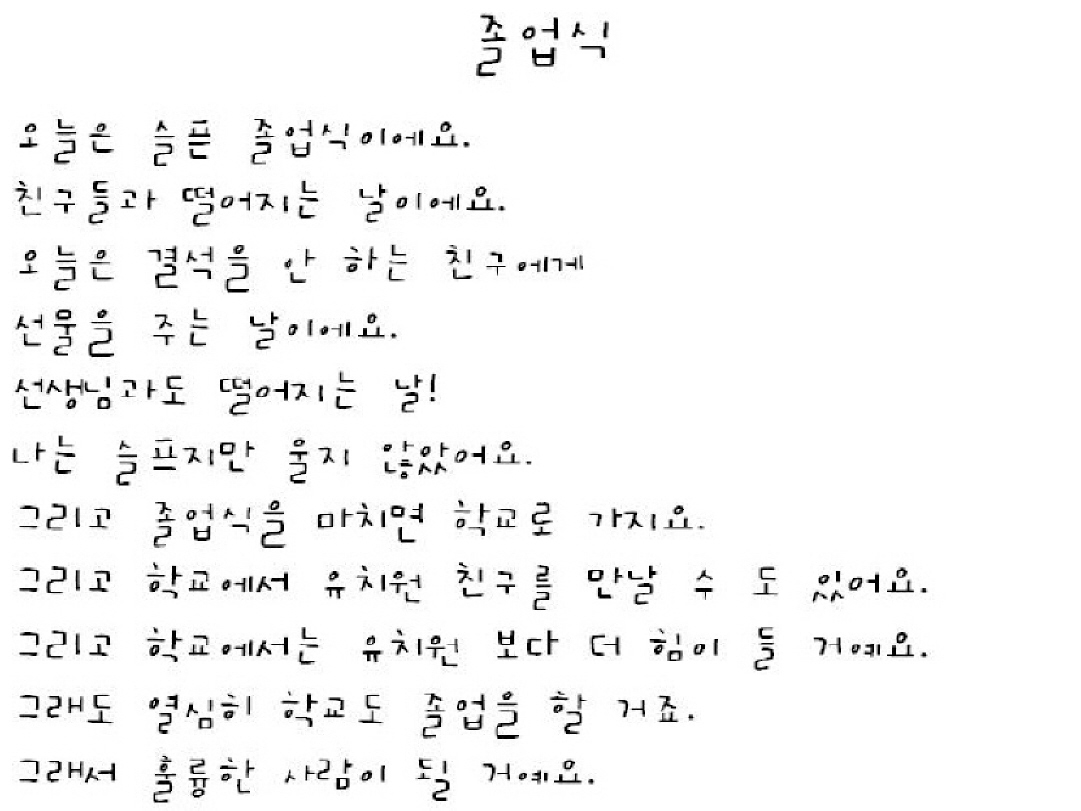 졸업식
오늘은 슬픈 졸업식이에요.
친구들과 떨어지는 날이에요.
오늘은 결석을 안 하는 친구에게
선물을 주는 날이에요.
선생님과도 떨어지는 날!
나는 슬프지만 울지 않았어요.
그리고 졸업식을 마치면 학교로 가지요.
그리고 학교에서 유치원 친구를 만날 수 도 있어요.
그리고 학교에서는 유치원 보다 더 힘이 들 거예요.
그래도 열심히 학교도 졸업을 할 거죠.
그래서 훌륭한 사람이 될 거예요.